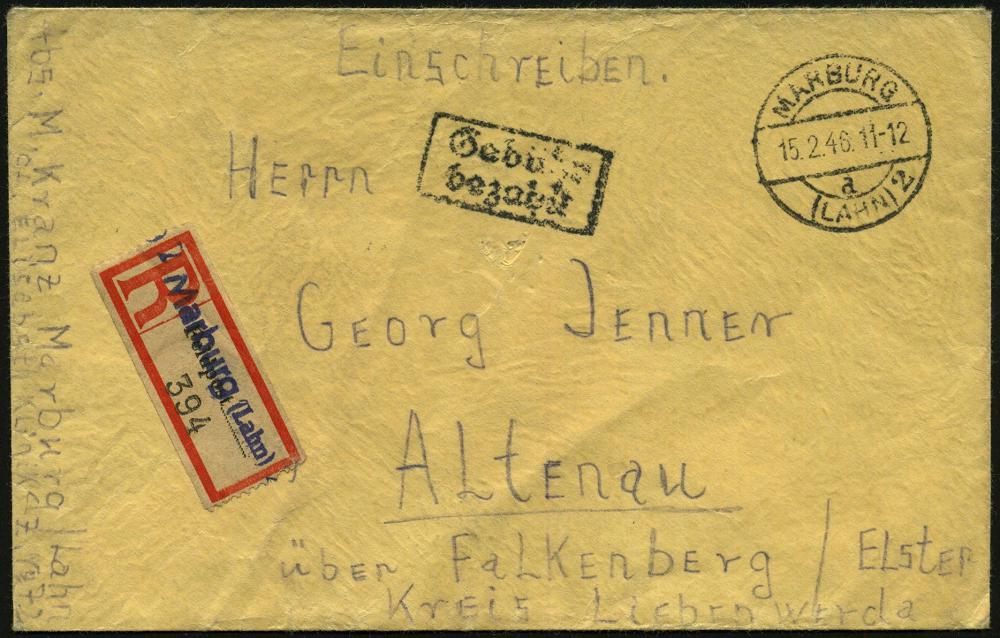 Einschreiben.
MARBURG
15.2.46.11-12
a
(LAHN) 2
Gebühr
bezahlt
Herrn
R
Marburg (Lahn)
394
Georg Jenner
Altenau
über Falkenberg / Elster
Kreis Liebenwerda
M Kranz Marburg/Lahn